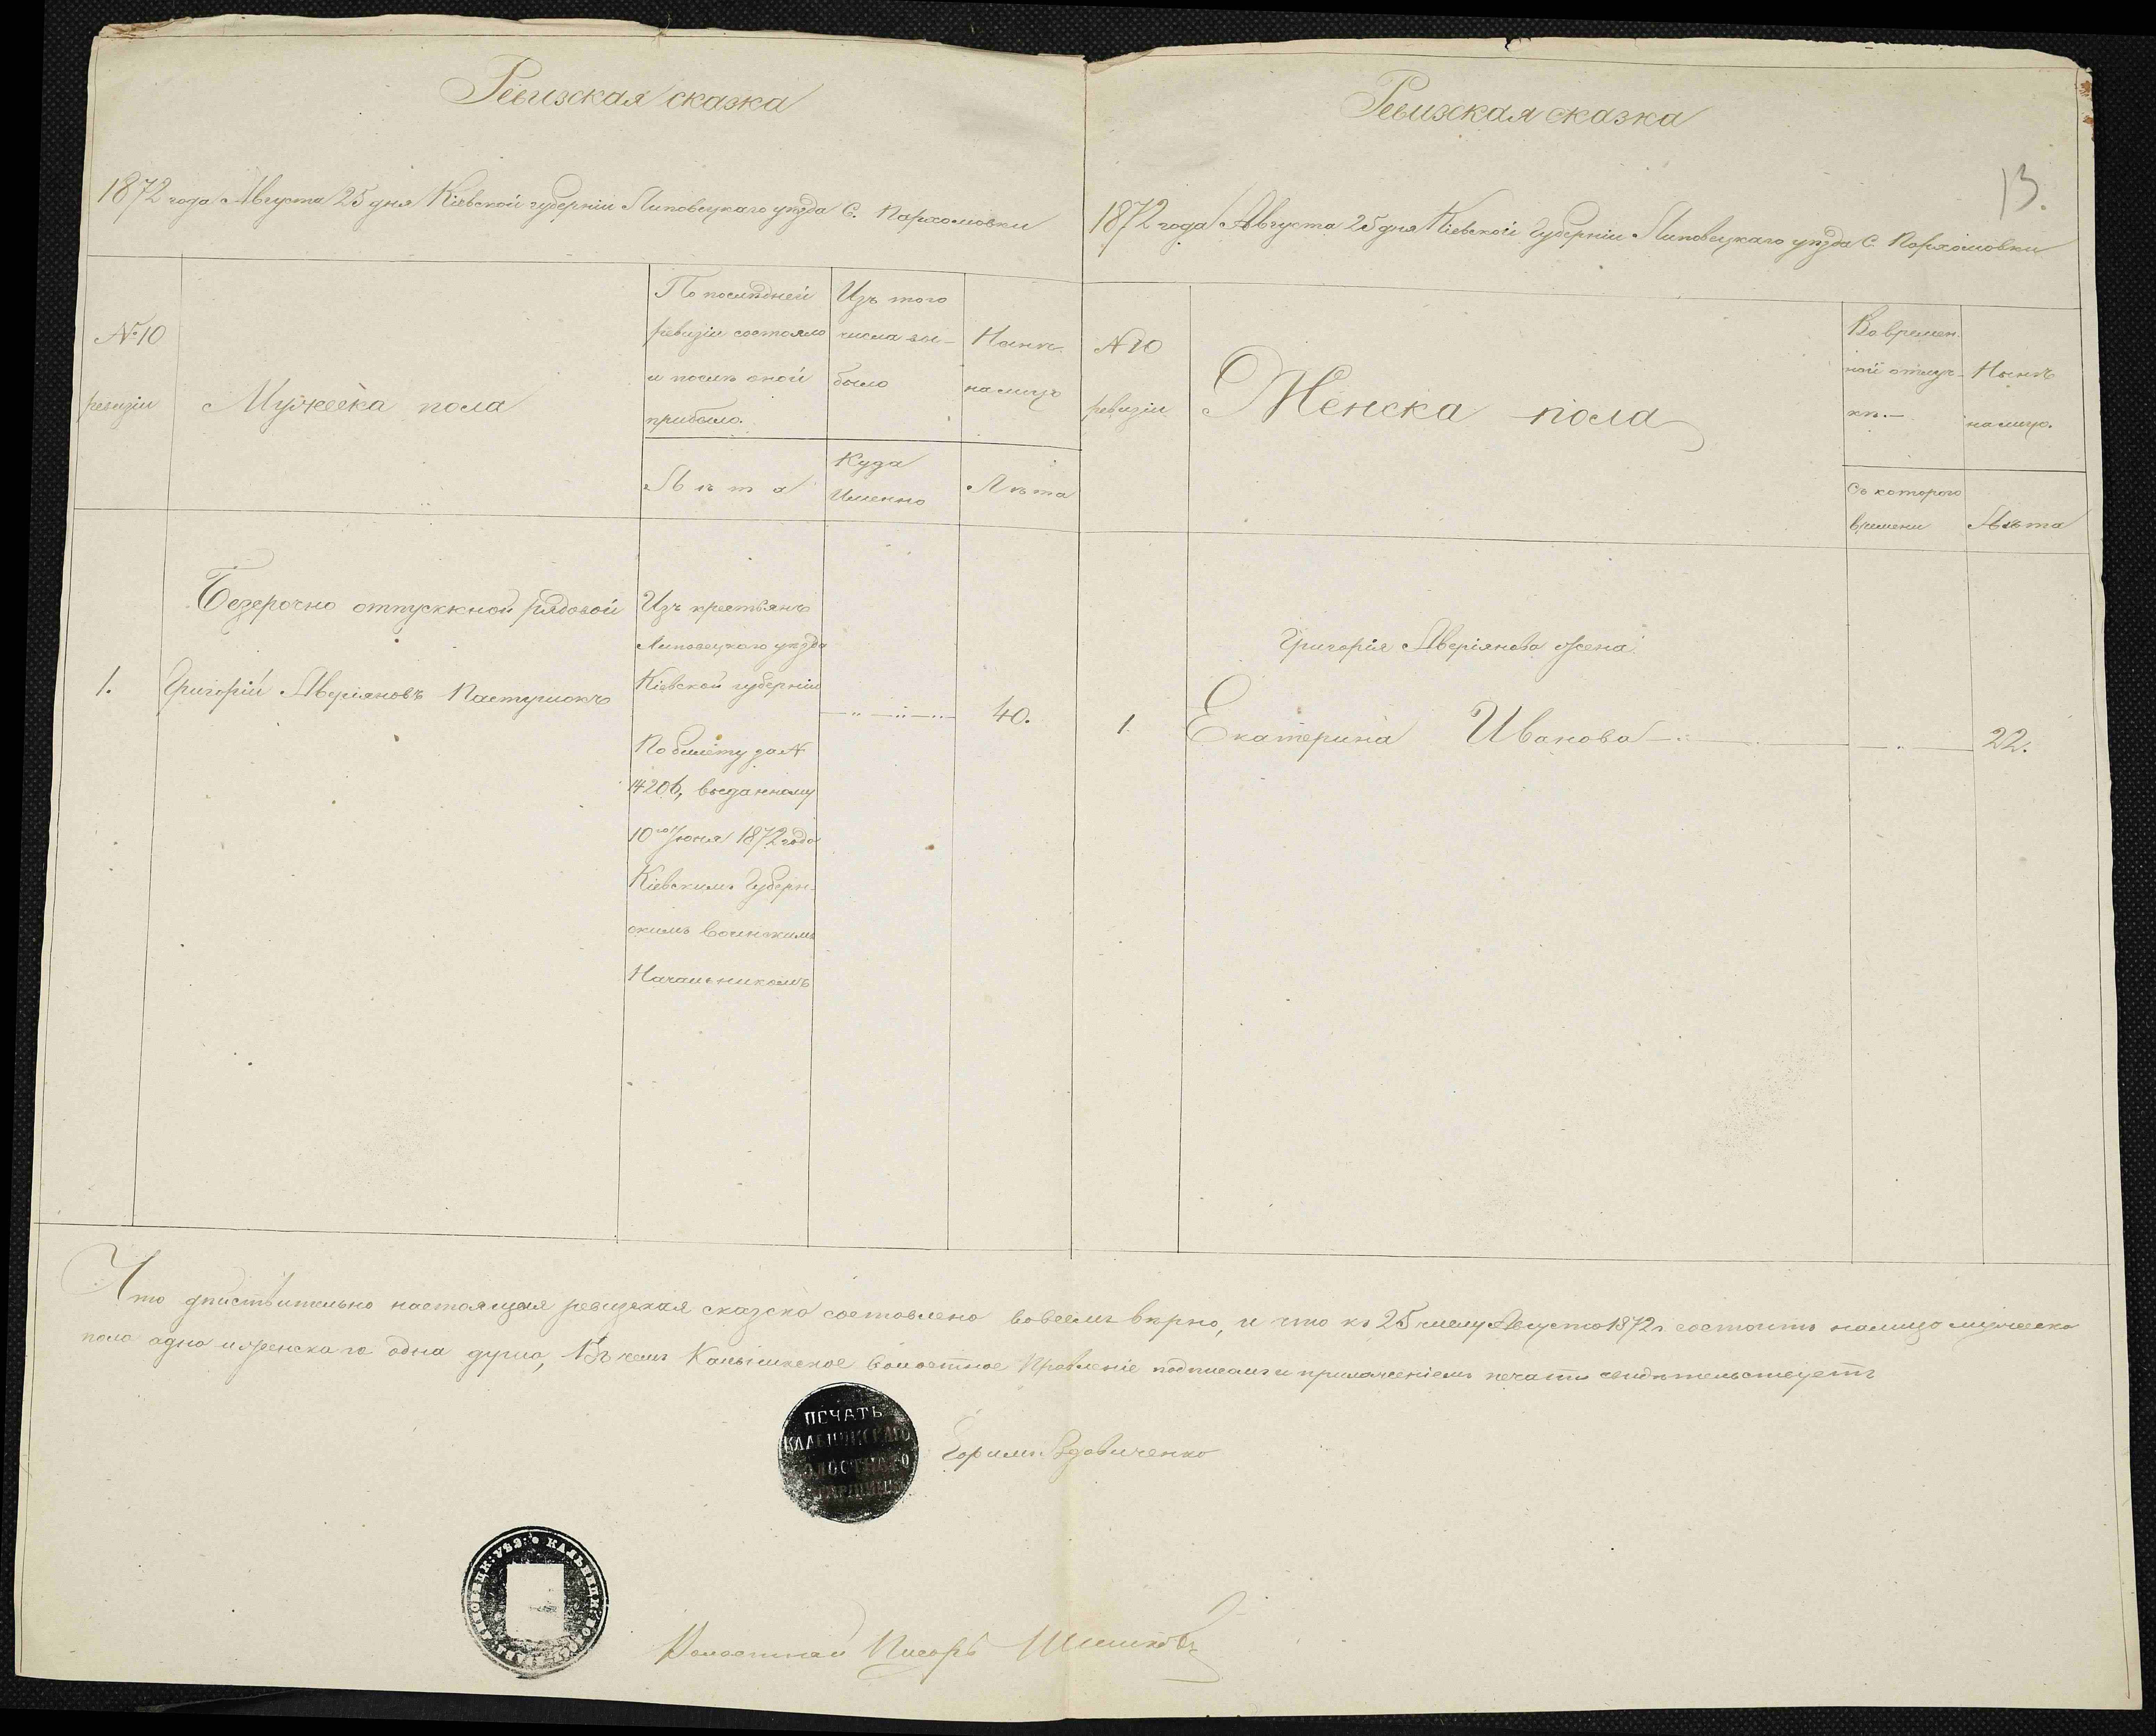 Ревизская сказка
1872 года Августа 25 дня Кіевской губерніи Липовецкаго уѣзда С. Пархомовки
№ 10
ревизіи
Мужеска пола
По послѣдней
ревизіи состояло
и послѣ оной
прибыло.
Лѣта
Изъ того
числа вы-
было
Куда
Именно
Нынѣ
на лицо
Лѣта
Безсрочно отпускной рядовой
1. Григорій Аверіяновъ Пастушокъ
Изъ крестьянъ
Липовецкаго уѣзда
Кіевской губерніи
По билету за №
14206, выданному
10го Іюня 1872 года
Кіевскимъ Губерн-
скимъ воинскимъ
Начальникомъ
40.
Ревизская сказка
13.
1872 года Августа 25 дня Кіевской Губерніи Липовецкаго уѣзда С. Пархомовки
№ 10
ревизіи
Женска пола
Во времен-
ной отлуч-
кѣ.—
Съ которого
времени
Нынѣ
на лицо.
Лѣта
Григорія Аверіянова жена
1 Екатерина Иванова 22.
Что дѣйствительно настоящая ревизская сказска составлена вовсемъ вѣрно, и что къ 25 числу Августа 1872 г. состоитъ на лицо мужеска
пола одна и женскаго одна душа, Въ чемъ Кальникское Волостное Правленіе подписомъ и приложеніемъ печати свидѣтельствуетъ
ПЕЧАТЬ
КАЛЬНИКСКАГО
ВОЛОСТНАГО
СТАРШИНЫ
Вдовиченко
ЛИПОВЕЦК: УѢЗ: КАЛЬНИЦК: ВОЛОСТ
Волостной Писарь